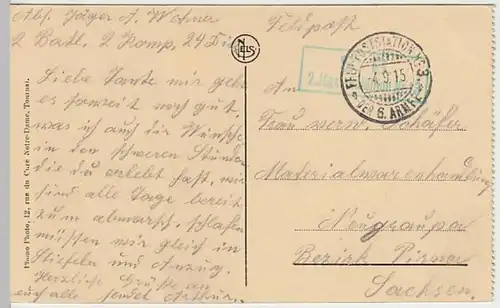 Abs. Jäger A. Wohner
2 Batl. 2 Komp. 24
Feldpost
NELS
FELDPOSTSTATION No 3
4.9.15
DER 6. ARMEE
An
Liebe Tante mir geht
es soweit noch gut,
was ich auch dir Wünsche
in den schweren Stunden
die du erlebt hast, wir
sind alle Tage bereit
zum abmarsch, schlafen
müssen wir gleich in
Stiefeln und Anzug.
Herzliche Grüße an
euch alle sendet Arthur
Phono Photo, 12, rue du Curé Notre-Dame, Tournai.
Frau verw. Schäfer
Materialwarenhandlung
Neugraupa
Bezirk Pirna
Sachsen.